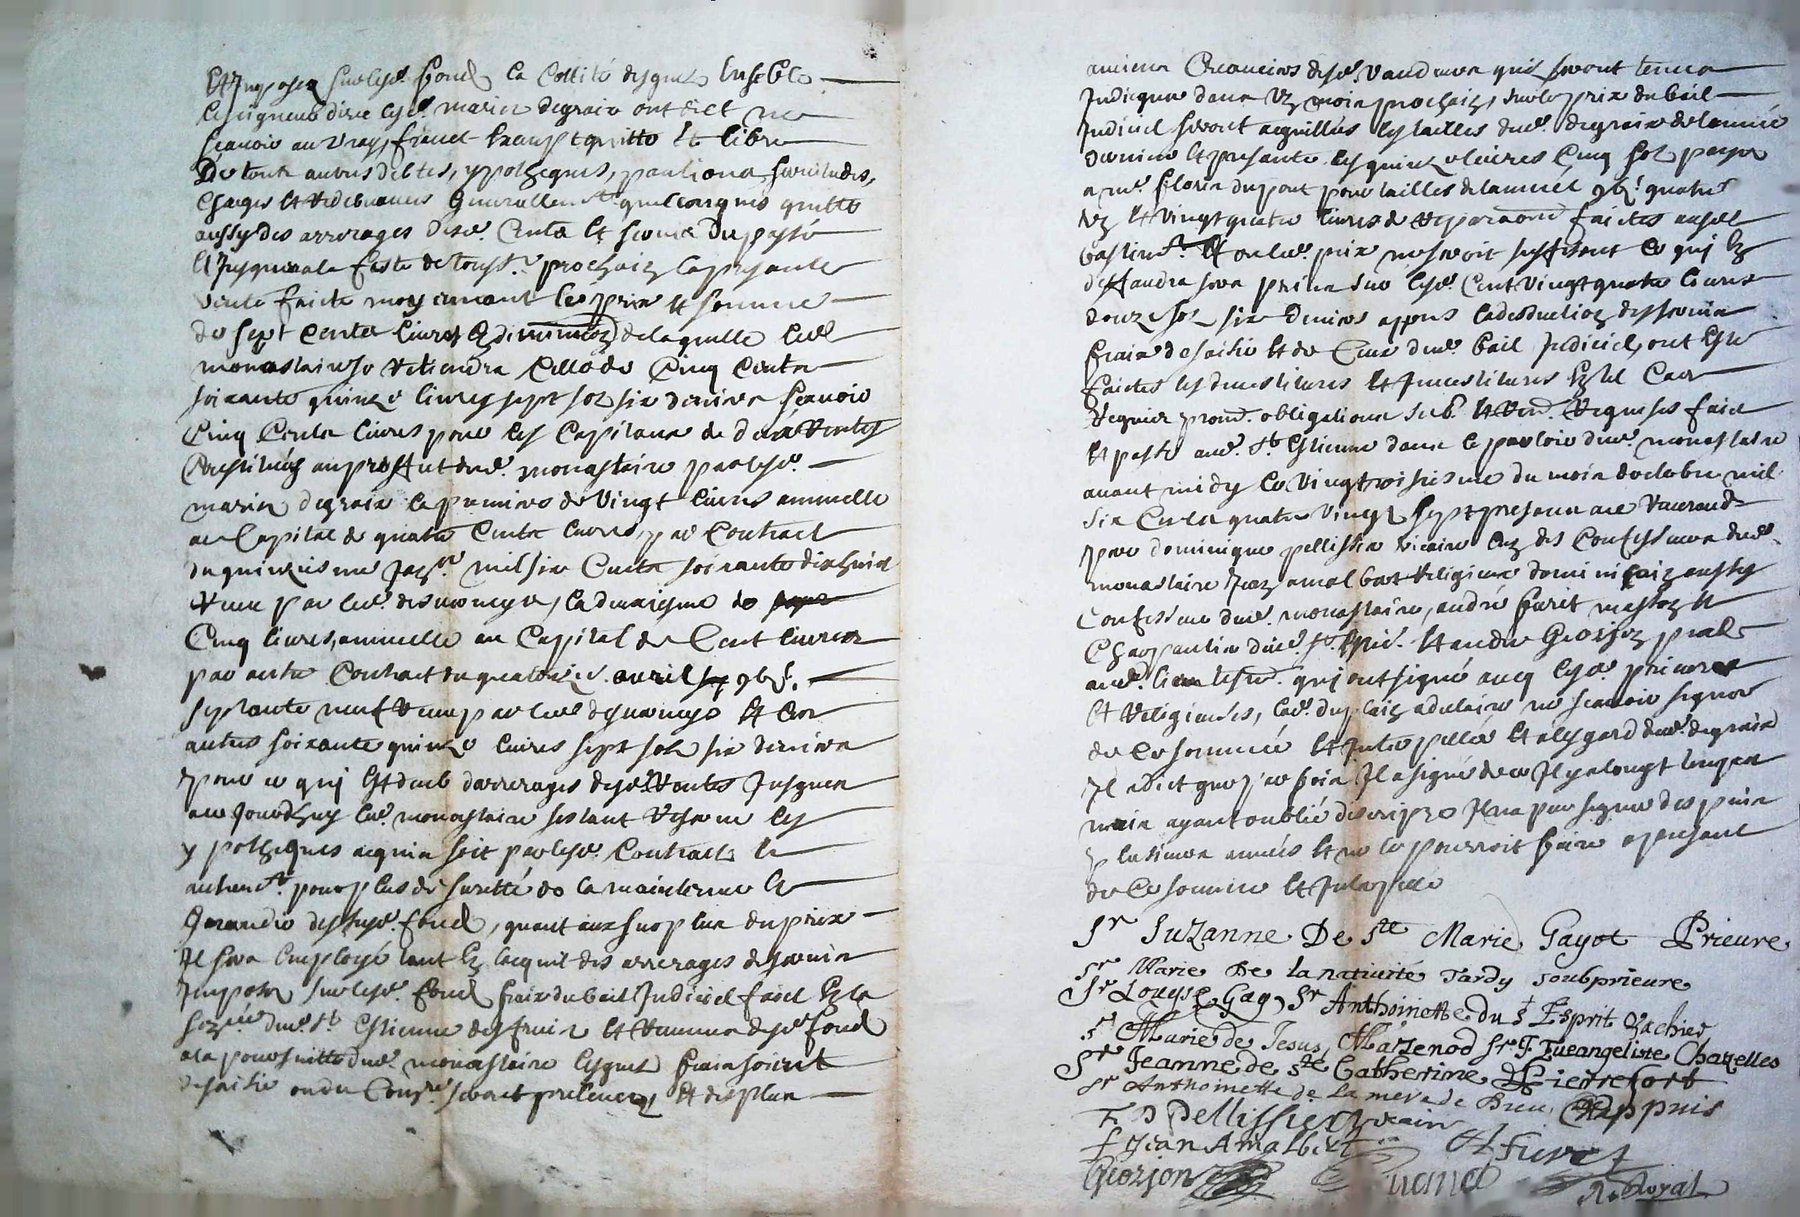 Et Imposez sur lesd. fond la Cottité desquels Ensemble
le seigneur direct lesd. maries degraix ont dict ne
scavoir au vray, franct Exempt quitte Et libre
De toute autres debtes, ypothecques, pantions, servitudes,
Charges Et redebvances Generallem.t quelconques quitte
aussy des arrerages desd. Cents Et servis du passé
Et Jusques a la feste de Touss.ts prochain la presante
vente faicte moyennant le prix Et somme
de sept Cents livres de laquelle led.
monastaire se retiendra Celle de Cinq Cents
soixante quinze livres sept sols six deniers scavoir
Cinq Cents livres pour les Capitaux de deux rentes
Constituées au proffit dud. monastaire par lesd.
maries degraix la premiere de vingt livres annuelle
au Capital de quatre Cents livres, par Contract
du quinziesme mil six Cents soixante dix huict
receu par led. desmoneys, la deuxiesme de
Cinq livres, annuelle au Capital de Cent livres
par autre Contract du quatorze avril
septante neuf receu par led. desmoneys Et les
autres soixante quinze livres sept sols six deniers
pour ce quj Est deub d'arrerages desd. Rentes Jusques a
ce Jourdhuy led. monastaire sestant reservé les
ypothecques acquis soit par lesd. Contracts Et
autrem.t pour plus de suretté de la maintenue Et
Garandie desd. fond, quant aux surplus du prix
Il sera Employé tant En lacquit des arrerages de servis
Imposez sur lesd. fond frais du bail Judiciel faict En la
dud. St Estienne des fruis Et revenus desd. fond
a la poursuitte dud. monastaire lesquels frais soient
de saisie ou du seront prelevez Et des plus
anciens Creanciers desd. vandeurs quils seront tenus
Indiquer dans un mois prochain, sur le prix du bail
Judiciel seront acquittées les tailles dud. degraix de lannée
derniere Et presante les quinze livres Cinq sols payez
a me. florix dupont pour tailles de lannée quatre
vingt Et vingt quatre livres de reparaons faictes ausd.
bastim.ts Et ou led. prix ne seroit suffisent ce quj En
deffaudra sera prins sur lesd. Cent vingt quatre livres
douze sols six deniers appres la desduction des servis
frais de saisie Et de Ceux dud. bail Judiciel, ont Esté
faictes les devestitures Et Jnvestitures En tel Cas
requises prom. obligations sub. Et requises faict
Et passé aud. St Estienne dans le parloir dud. monastaire
avant midy le vingt troisiesme du mois doctobre mil
six Cents quatre vingt sept presens au reverend
pere dominique pellissier vicaire des Confesseurs dud.
monastaire Jean amalbert religieux dominicain aussy
Confesseur dud. monastaire, andré furet masson Et
Charpantier dud. St Estie. Et andre Georjon prale
aud. lieu tesm. quj ont signé avec lesd. prieures
Et religieuses, lad. duplain adelaire ne scavoir signer
de Ce sommée Et Interpellée Et a lesgard dud. degraix
Il a dict que par fois Il a signé de ce Il y a longt temps
mais ayant oublié descripre Il na peu signer despuis
plusieurs années Et ne le pourroit faire a presant
de Ce sommé Et Interpellé
Sr Suzanne De Ste Marie Gayot Prieure
Sr Marie De la nativité Tardy soubprieure
Sr Louyse Gay, Sr Anthoinette du St Esprit Zachies
Sr Marie de Jesus, Mazenod Sr J. Evangeliste Chazelles
Sr Jeanne de Ste Catherine Pierrefort
Sr Anthoinette de la mere de Dieu Dappuis
F. D Pellissier vicaire
f Jean Amalbert A Furet
Georjon